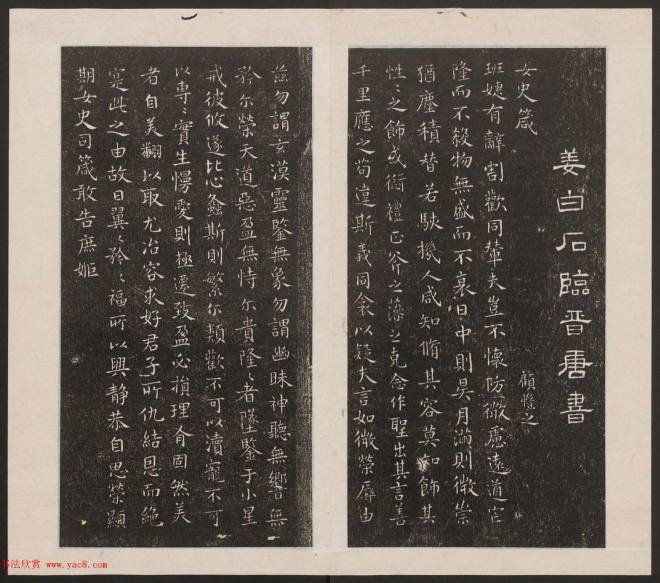 姜白石臨晋唐書
女史箴
顧愷之
班婕有辭割歡同輦夫豈不懷防微慮遠道罔
隆而不殺物無盛而不衰日中則昃月滿則微崇
猶塵積替若駭機人咸知脩其容莫知飾其
性〻之飾或愆禮正斧之藻之克念作聖出其言善
千里應之苟違斯義同衾以疑夫言如微榮辱由
茲勿謂玄漠靈鑒無象勿謂幽昧神聽無響無
矜尔榮天道惡盈無恃尔貴隆〻者墜鑒于小星
戒彼攸遂比心螽斯則繁尔類歡不可以瀆寵不可
以專〻實生慢愛則極遷致盈必損理有固然美
者自美翩以取尤冶容求好君子所仇結恩而絕
寔此之由故曰翼〻矜〻福所以興靜恭自思榮顯
期女史司箴敢告庶姬
书法欣赏 www.yac8.com